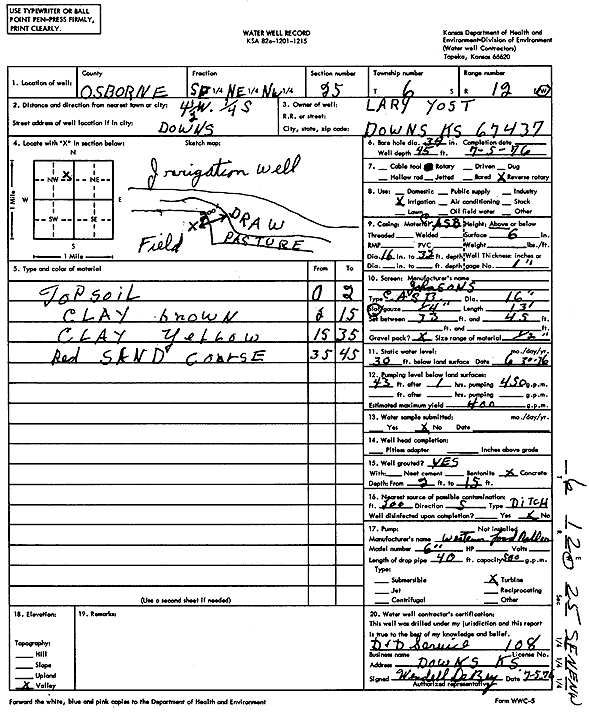 USE TYPEWRITER OR BALL
POINT PEN-PRESS FIRMLY,
PRINT CLEARLY.
WATER WELL RECORD
KSA 82a-1201-1215
Kansas Department of Health and
Environment-Division of Environment
(Water well Contractors)
Topeka, Kansas 66620
1. Location of well: County OSBORNE Fraction SE 1/4 NE 1/4 NW 1/4 Section number 25 Township number T 6 S Range number R 12 E/W
2. Distance and direction from nearest town or city: 4½ W. ¼ S
Street address of well location if in city: DOWNS
3. Owner of well: LARY YOST
R.R. or street:
City, state, zip code: DOWNS KS 67437
4. Locate with "X" in section below:
Sketch map:
N
NW X NE
W E
SW SE
S
1 Mile
1 Mile
Irrigation well
X
DRAW
Field
PASTURE
5. Type and color of material From To
Top SOIL 0 2
CLAY brown 6 15
CLAY Yellow 15 35
Red SAND COARSE 35 45
(Use a second sheet if needed)
6. Bore hole dia. 30 in. Completion date
Well depth 45 ft. 7-5-76
7. Cable tool Rotary Driven Dug
Hollow rod Jetted Bored X Reverse rotary
8. Use: Domestic Public supply Industry
X Irrigation Air conditioning Stock
Lawn Oil field water Other
9. Casing: Material ASB Height: Above or below
Threaded Welded Surface 6 in.
RMP PVC Weight lbs./ft.
Dia. 16 in. to 33 ft. depth Wall Thickness: inches or
Dia. in. to ft. depth gage No. 1"
10. Screen: Manufacturer's name
Type Dia. 16"
Slot/gauze Length 13'
Set between 33 ft. and 45 ft.
ft. and ft.
Gravel pack? X Size range of material
11. Static water level: mo./day/yr.
30 ft. below land surface Date 6 30-76
12. Pumping level below land surfaces:
43 ft. after 1 hrs. pumping 450 g.p.m.
ft. after hrs. pumping g.p.m.
Estimated maximum yield 400 g.p.m.
13. Water sample submitted: mo./day/yr.
Yes X No Date
14. Well head completion:
Pitless adapter Inches above grade
15. Well grouted? YES
With: Neat cement Bentonite X Concrete
Depth: From 2 ft. to 15 ft.
16. Nearest source of possible contamination:
ft. 300 Direction S Type DITCH
Well disinfected upon completion? Yes X No
17. Pump: Not installed
Manufacturer's name Western
Model number 6" HP Volts
Length of drop pipe 40 ft. capacity 500 g.p.m.
Type:
Submersible X Turbine
Jet Reciprocating
Centrifugal Other
18. Elevation:
19. Remarks:
Topography:
Hill
Slope
Upland
X Valley
20. Water well contractor's certification:
This well was drilled under my jurisdiction and this report
is true to the best of my knowledge and belief.
D+D Service 108
Business name License No.
Address DOWNS KS
Signed Wendell DeBey Date 7-5-76
Authorized representative
Forward the white, blue and pink copies to the Department of Health and Environment
Form WWC-5
T 6 R 12 E W Sec 25 SE NE NW 1/4 1/4 1/4